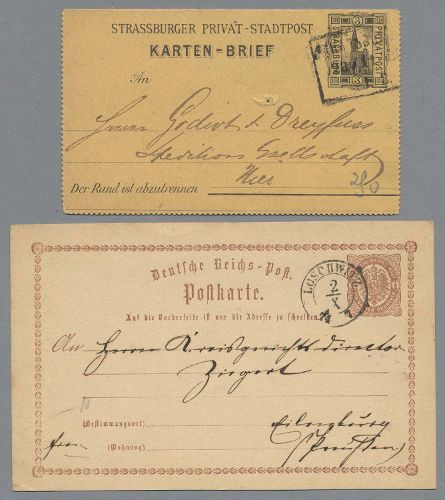 STRASSBURGER PRIVAT-STADTPOST
KARTEN-BRIEF
PRIVATPOST
STRASSBURG
3 3
An
Herren Godwot & Dreyfuss
Spedition Gesellschaft
Hier
Der Rand ist abzutrennen
Deutsche Reichs-Post.
Postkarte.
Auf die Vorderseite ist nur die Adresse zu schreiben.
LOSCHWITZ
2
X
74
An Herrn Kreisgerichts Director
Ziegert
(Bestimmungsort) Eilenburg
frei (Wohnung) (Preussen)